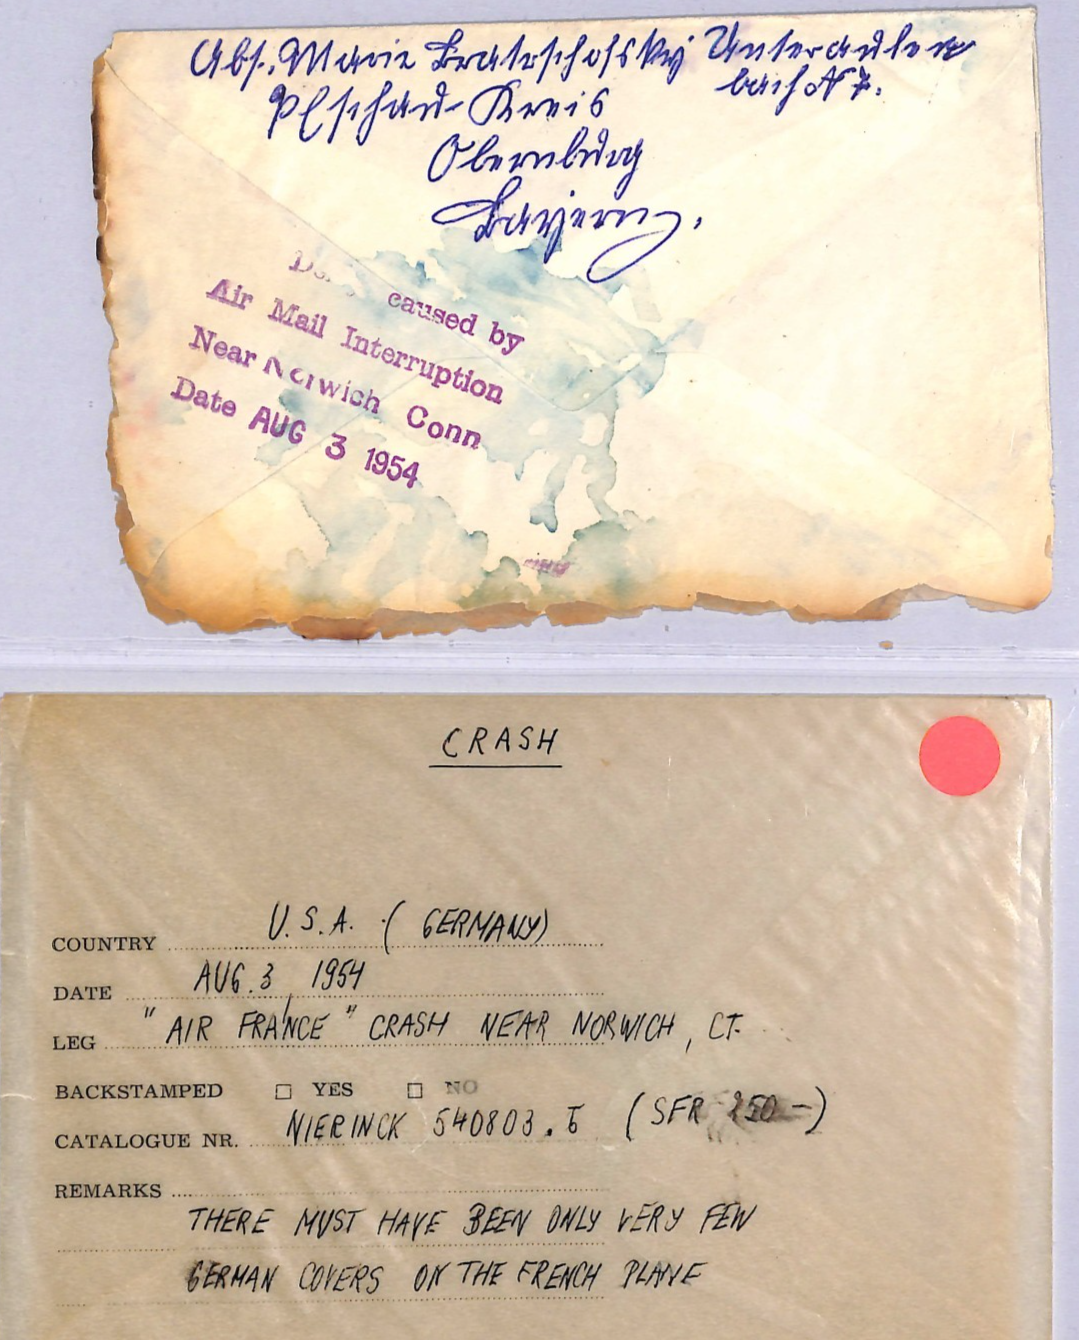 Abs. Marie Bratrschofsky Unteraulen
bach No 7.
Pfschau-Kreis
Obernburg
Bayern.
caused by
Air Mail Interruption
Near Norwich Conn
Date AUG 3 1954
CRASH
COUNTRY U.S.A. (GERMANY)
DATE AUG. 3, 1954
LEG "AIR FRANCE" CRASH NEAR NORWICH, CT.
BACKSTAMPED YES NO
CATALOGUE NR. NIERINCK 540803.E (SFR 250-)
REMARKS
THERE MUST HAVE BEEN ONLY VERY FEW
GERMAN COVERS ON THE FRENCH PLANE